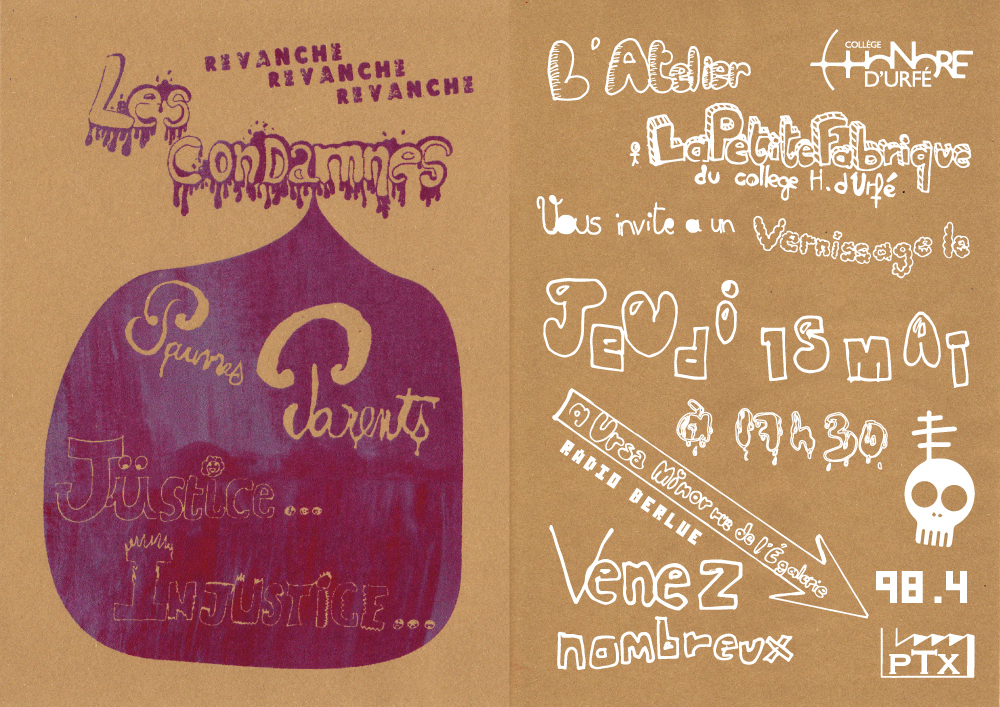 REVANCHE
REVANCHE
REVANCHE
Les
condamnes
Pauvres
Parents
Jüstice...
Injustice...
L'Atelier
COLLÈGE
HONORE
D'URFÉ
LaPetiteFabrique
du college H. d'Urfé
Vous invite a un Vernissage le
Jeudi 15 mai
à 17h30
a Ursa Minor rue de l'Égalerie
RADIO BERLUE
98.4
Venez
nombreux
PTX